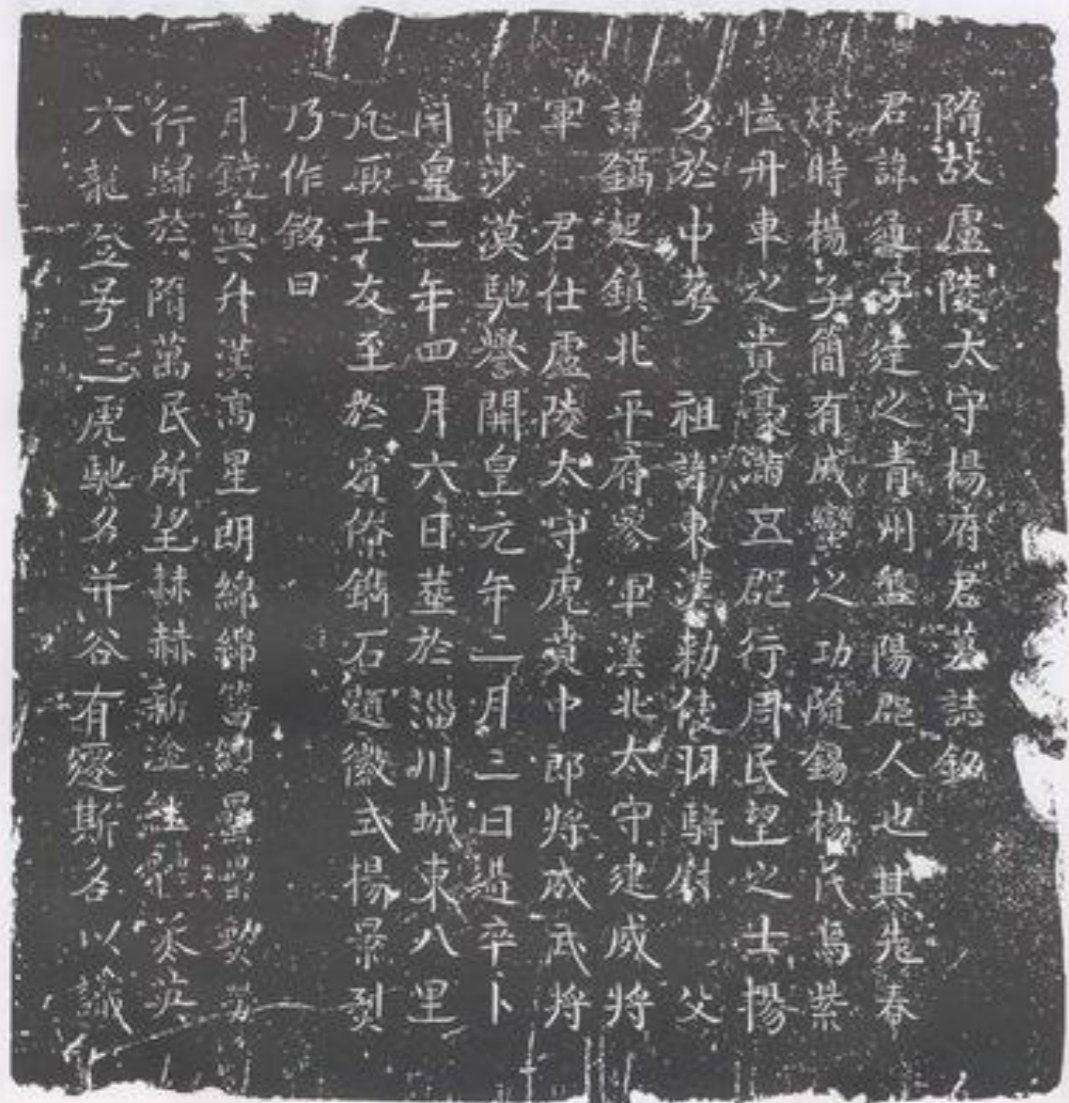 隋故盧陵太守楊府君墓誌銘
君諱通字達之青州盤陽郡人也其先春
秌時楊子簡有威蠻之功隨錫楊氏焉紫
舟車之貴豪滿五郡行周民望之士揚
名於中華 祖諱東漢勅使羽騎尉 父
諱起鎮北平府參軍漢北太守建威將
軍 君仕盧陵太守虎賁中郎將威武將
軍沙漠馳譽開皇元年二月三日遘卒卜
開皇二年四月六日塟於淄川城東八里
凡厥士友至於賓僚鐫石題徽式揚景烈
乃作銘曰
月鏡升漢高星朗綿綿
行歸於隋萬民所望赫赫新
六龍登号三虎馳名幷谷有遷斯名以識